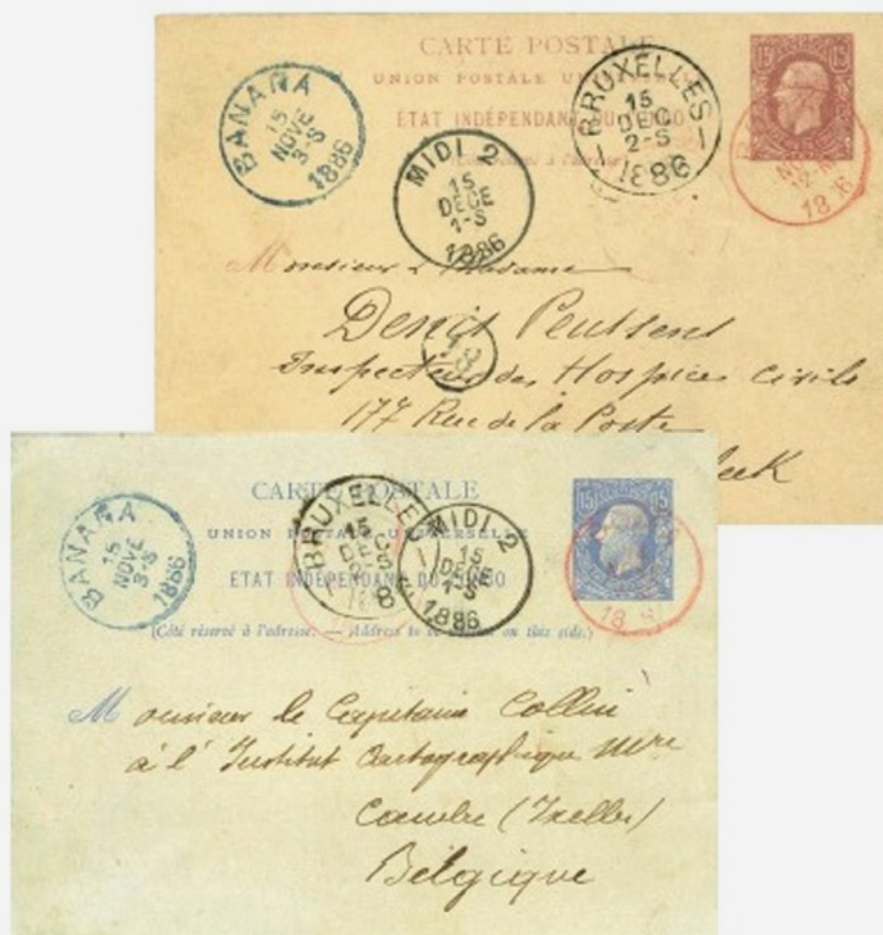 CARTE POSTALE
UNION POSTALE UNIVERSELLE
ETAT INDÉPENDANT DU CONGO
15 15
BANANA
15
NOVE
3-S
1886
MIDI 2
15
DECE
1-S
1886
BRUXELLES
15
DEC
2-S
1886
18
Monsieur & Madame
Denis Peutsens
Inspecteur des Hospices Civils
177 Rue de la Poste
eek
CARTE POSTALE
UNION POSTALE UNIVERSELLE
ETAT INDÉPENDANT DU CONGO
(Côté réservé à l'adresse. — Address to be on this side.)
15 15
BANANA
15
NOVE
3-S
1886
BRUXELLES
15
DEC
MIDI 2
15
DECE
1-S
1886
18
Monsieur le Capitaine Collin
à l'Institut Cartographique Mre
Cambre (Ixelles)
Belgique